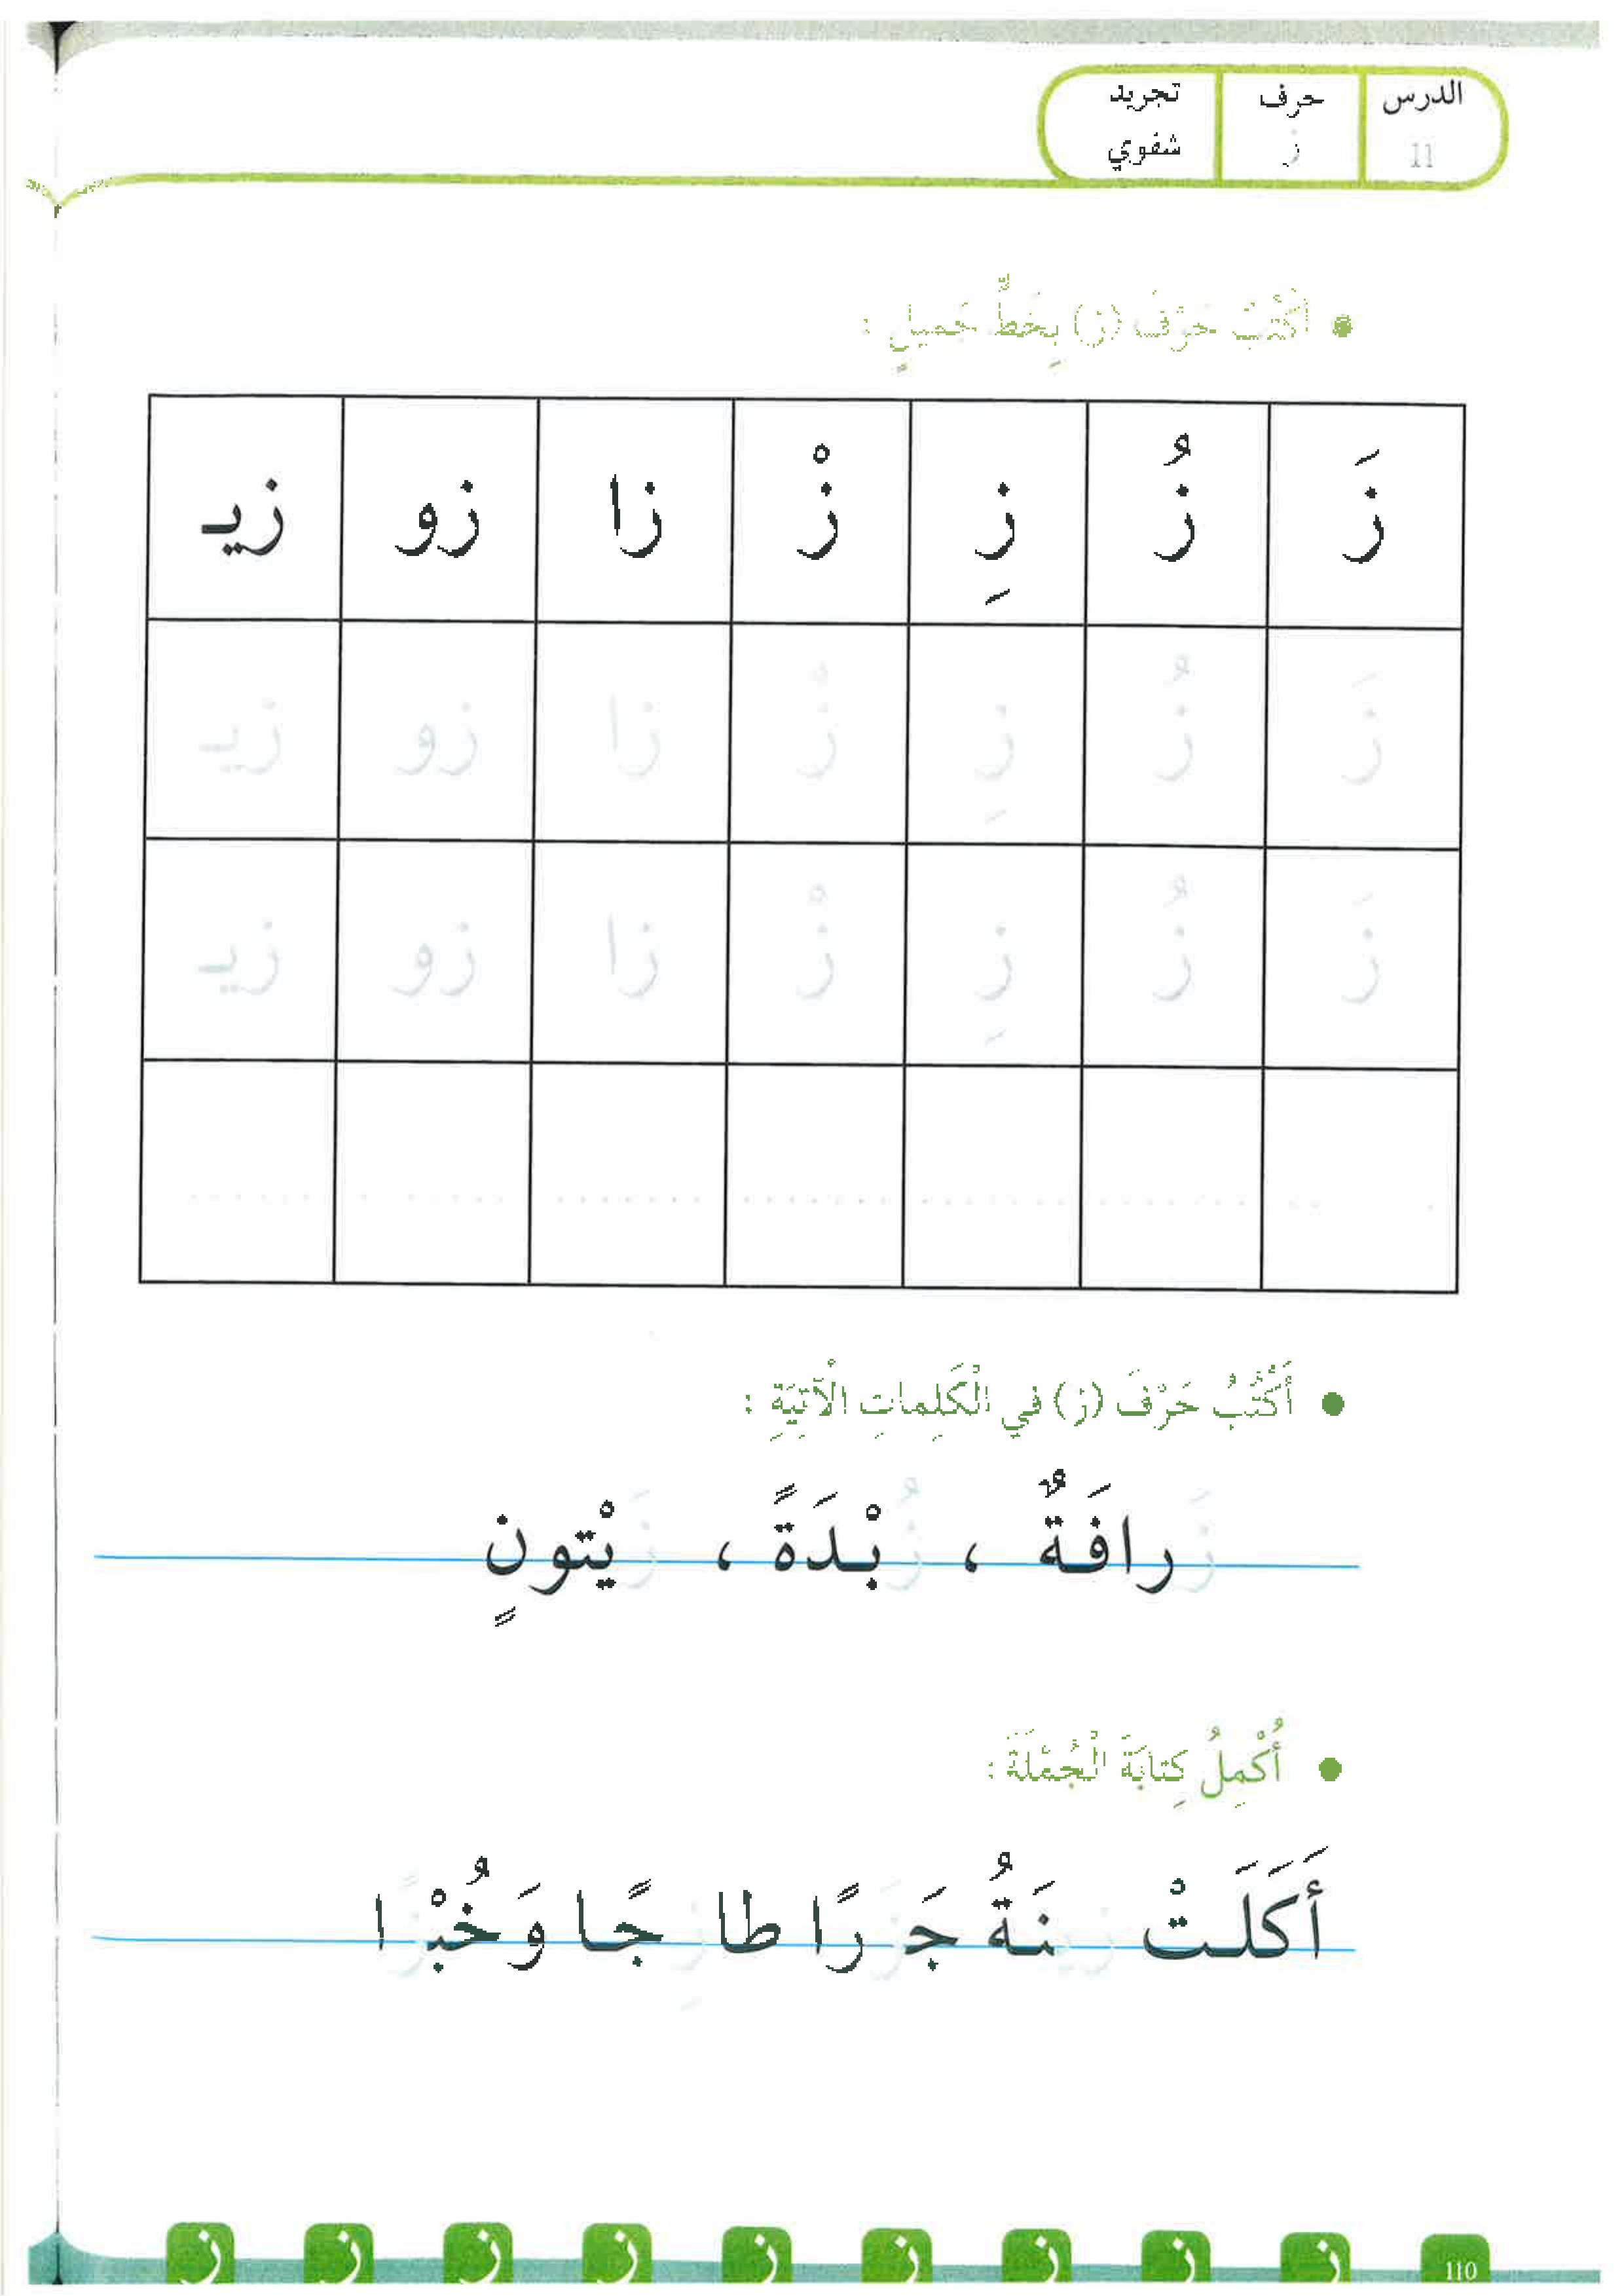 الدرس حرف تجريد
11 ز شفوي
• أَكْتُبُ حَرْفَ (ز) بِخَطٍّ جَميلٍ :
زَ زُ زِ زْ زا زو زيـ
زَ زُ زِ زْ زا زو زيـ
زَ زُ زِ زْ زا زو زيـ
• أَكْتُبُ حَرْفَ (ز) في الْكَلِماتِ الْآتِيَةِ :
زَرافَةٌ ، زُبْدَةً ، زَيْتونٍ
• أُكْمِلُ كِتابَةَ الْجُمْلَةَ :
أَكَلَتْ زينَةُ جَزَرًا طازِجًا وَخُبْزًا
ز ز ز ز ز ز ز ز ز 110